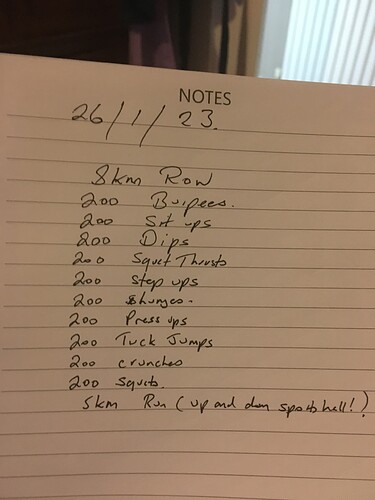 NOTES
26/1/23.
8km Row
200 Burpees.
200 Sit ups
200 Dips
200 Squat Thrusts
200 Step ups
200 Lunges.
200 Press ups
200 Tuck Jumps
200 crunches
200 Squats.
5km Run (up and down sports hall!)